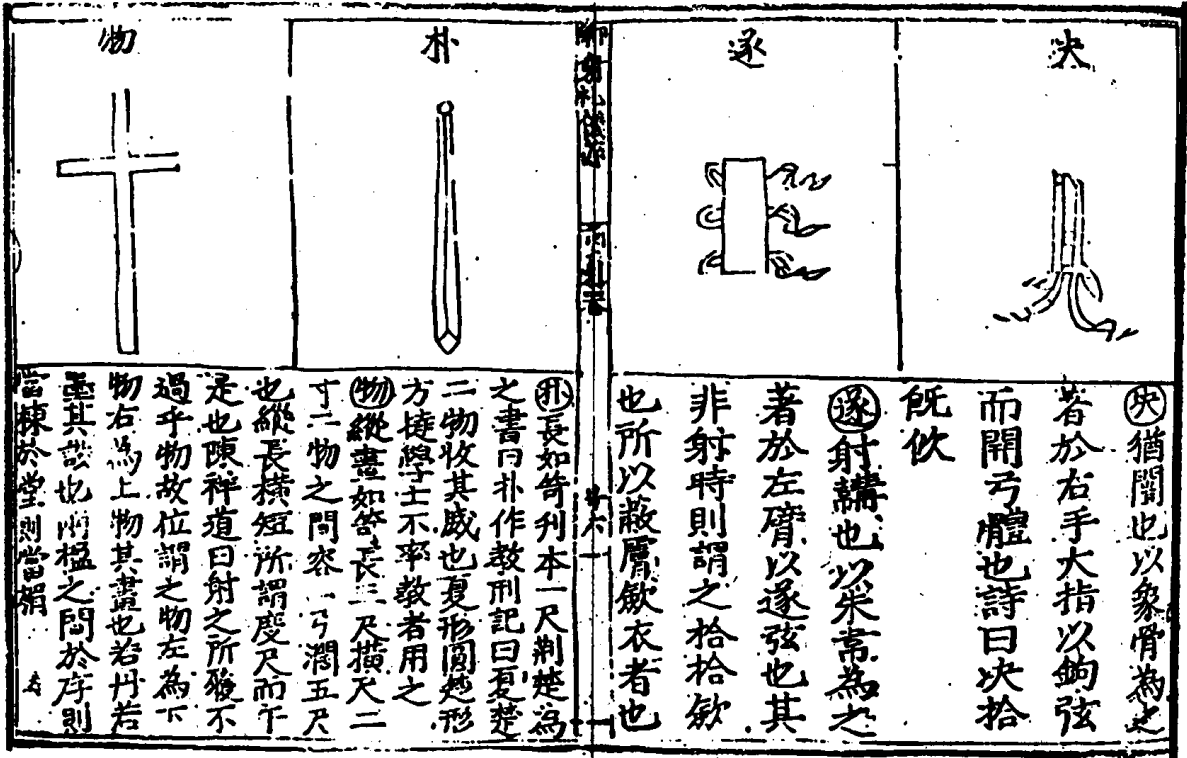 决
遂
朴
物
决猶闓也以象骨為之
著於右手大指以鉤弦
而開弓體也詩曰决拾
旣佽
遂射韝也以朱韋為之
著於左臂以遂弦也其
非射時則謂之拾拾斂
也所以蔽膚斂衣者也
朴長如笴刊本一尺荆楚為
之書曰朴作教刑記曰夏楚
二物收其威也夏形圓楚形
方撻學士不率教者用之
物縱畫如笴長三尺橫尺二
寸二物之間容一弓濶五尺
也縱長橫短所謂度尺而午
是也陳祥道曰射之所履不
過乎物故位謂之物左為下
物右為上物其畫也若丹若
墨其設也兩楹之間於序則
當棟於堂則當楣